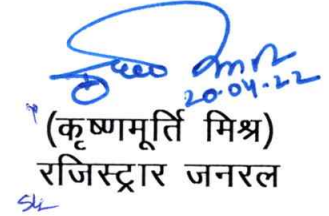 20-04-22
(कृष्णमूर्ति मिश्र)
रजिस्ट्रार जनरल